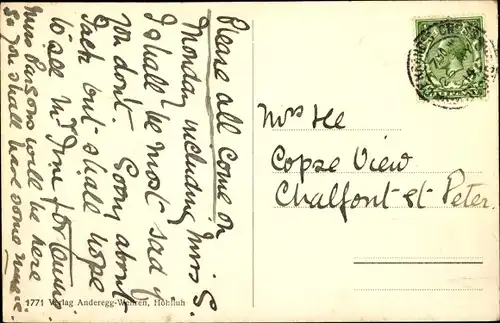 Please all come on
Monday including Miss G.
I shall be most sad if
you don't. Sorry about
Jack but shall hope
to see Mr Ive for tennis
Miss Parsons will be here
So you shall have some
Mrs Ive
Copse View
Chalfont St Peter.
1771 Verlag Anderegg-Wehren, Hohfluh